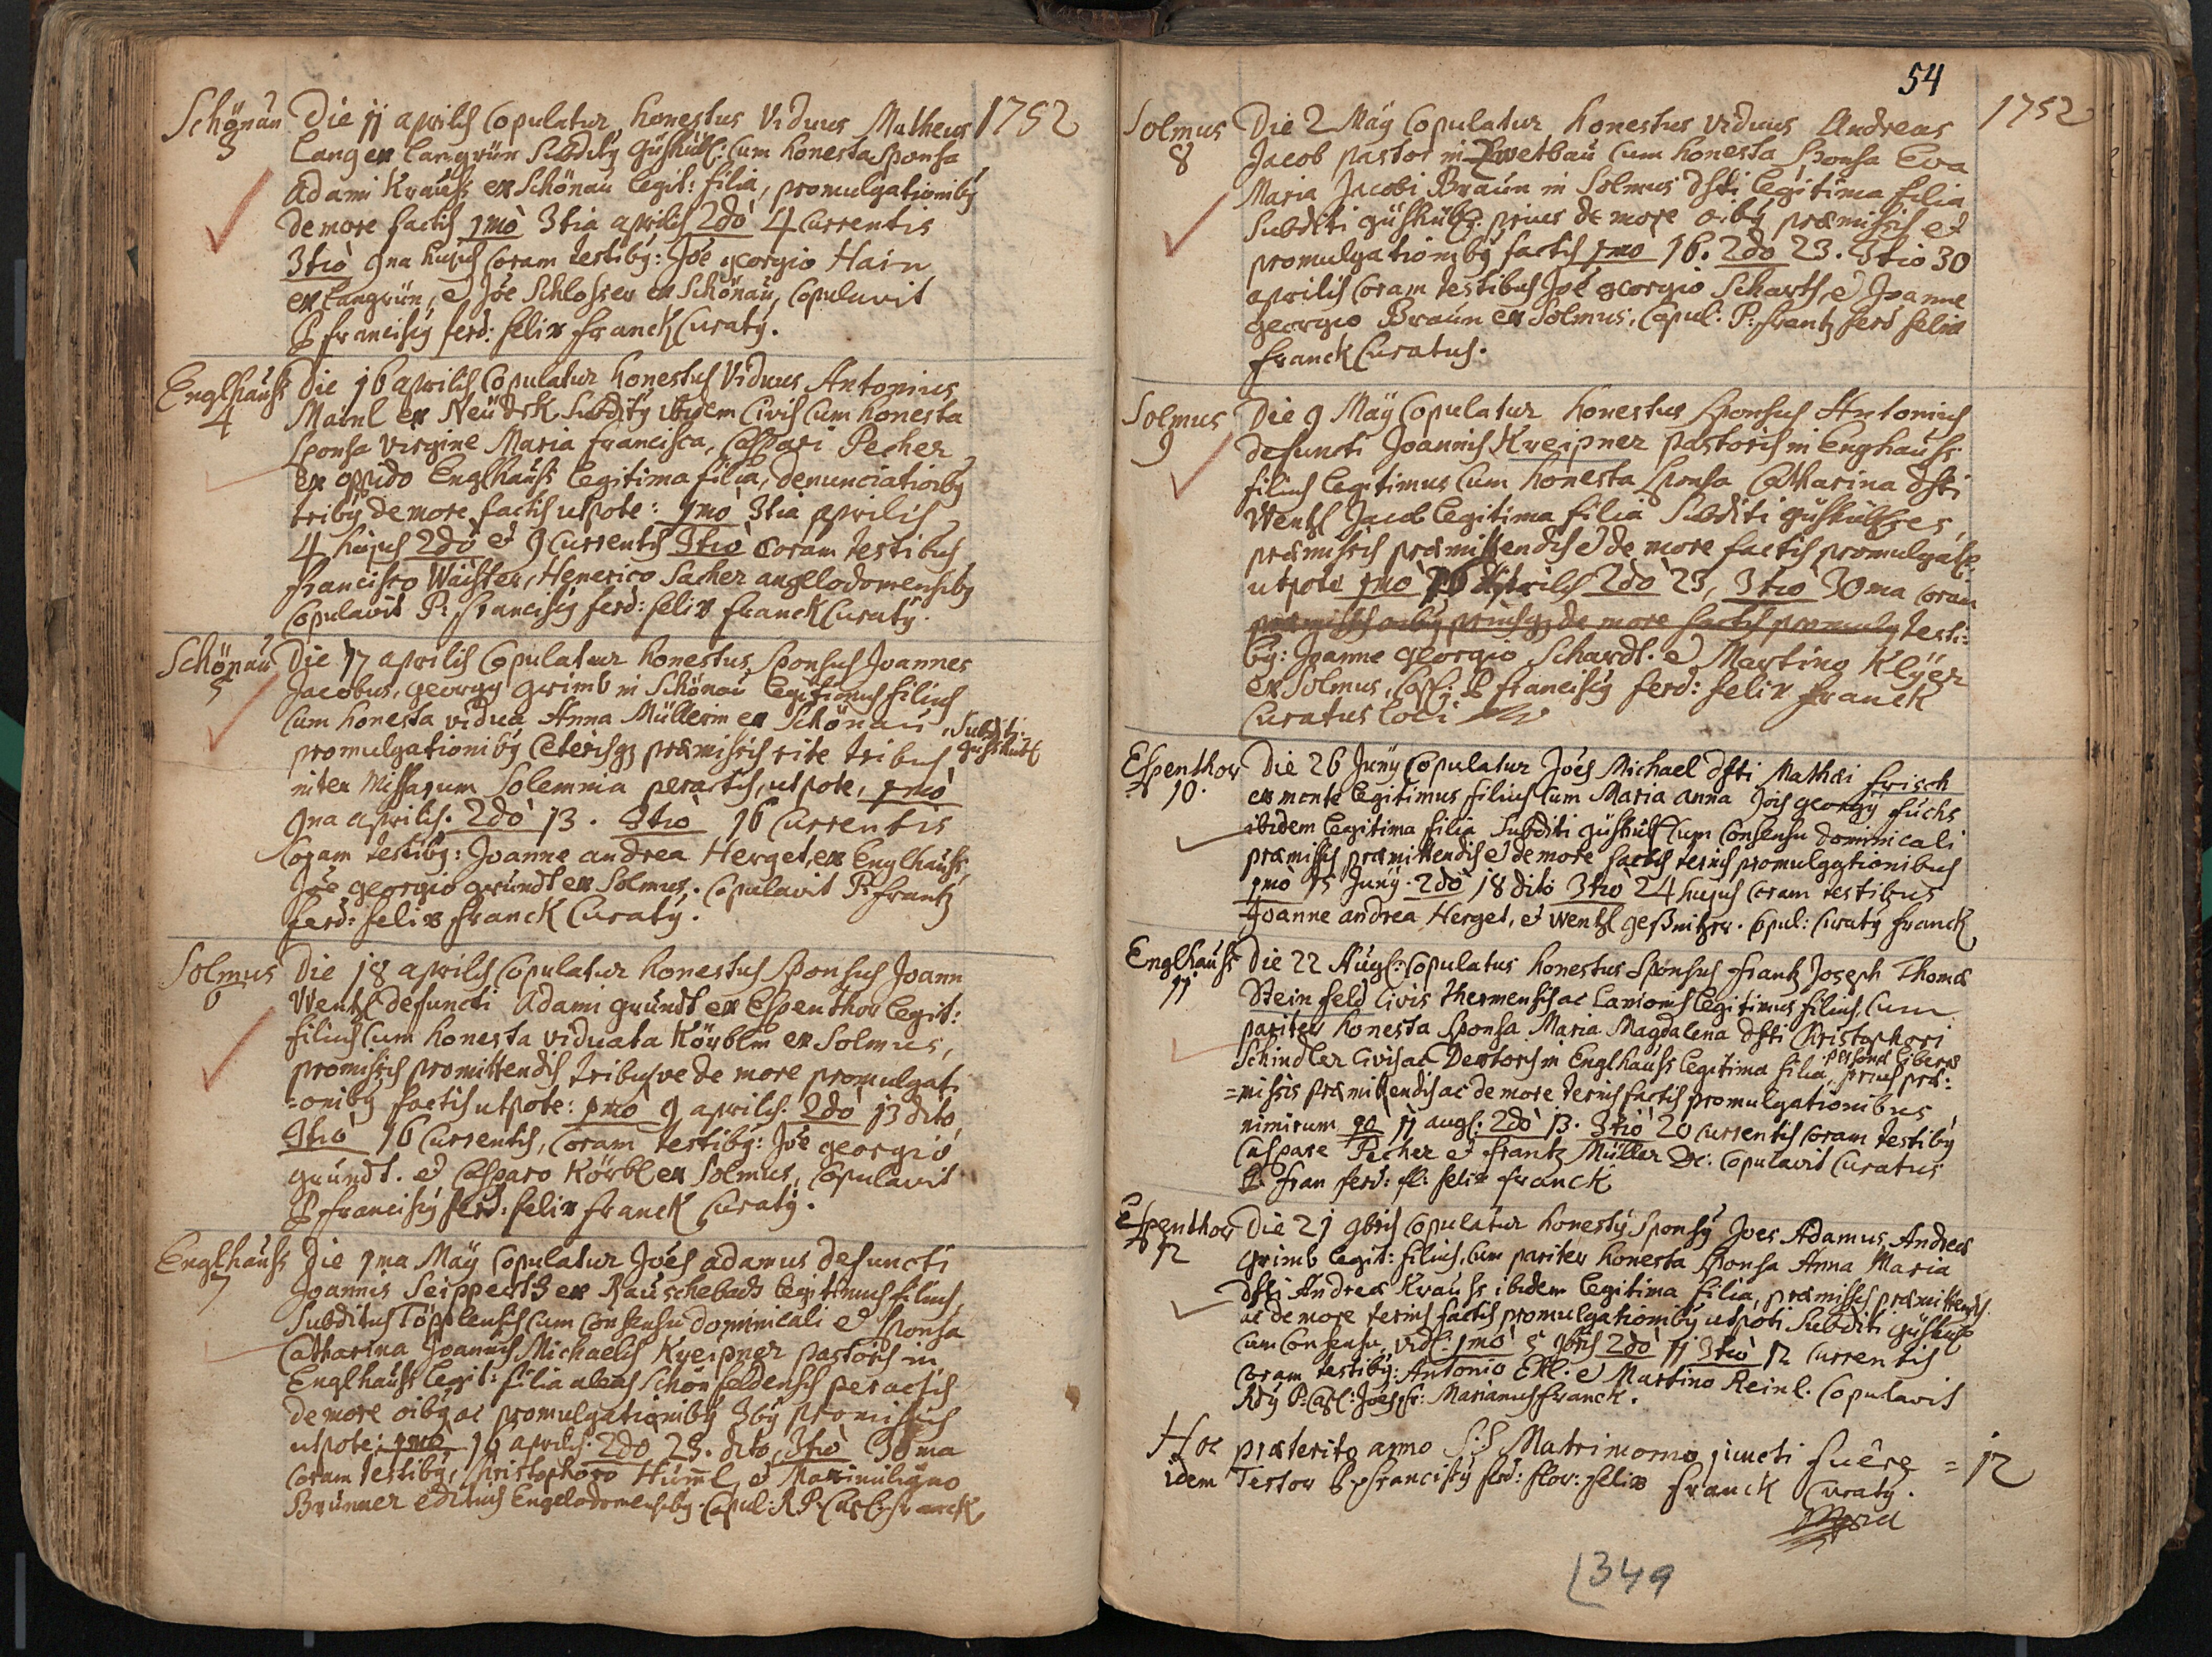 1752
Schönau
3
Die 11 aprilis Copulatur honestus Viduus Matheus
Lang ex Langrün Subditq Gishübl: Cum honesta Sponsa
Adami Krauss ex Schönau legit: filia, promulgationibq
de more factis 1mo 3tia aprilis 2do 4 Currentis
3tio 9na hujus Coram testibq: Joe georgio Hain
ex Langrün, et Joe Schlosser ex Schönau, Copulavit
P franciscq ferd: felix franck Curatq.
Englhauss
4
Die 16 aprilis Copulatur honestus Viduus Antonius
ex Neüdek Subditq ibidem Civis Cum honesta
Sponsa Virgine Maria francisca, Caspari Pecher
ex opido Englhauss legitima filia, denunciatioibq
tribq de more factis utpote: 1mo 3tia aprilis
4 hujus 2do et 9 Currentis 3tio Coram testibus
francisco Wächter, Henerico Sacher angelodomensibq
Copulavit P: franciscq ferd: felix franck Curatq.
Schönau
5
Die 17 aprilis Copulatur honestus Sponsus Joannes
Jacobus, georgy grimb in Schönau legitimus filius
Cum honesta vidua Anna Müllerin ex Schönau, Subditi
Gishübl
promulgationibq Ceterisq praemissis rite tribus
inter Missarum Solemnia peractis, utpote, 1mo
9na aprilis. 2do 13. 3tio 16 Currentis
Coram testibq: Joanne andrea Herget, ex Englhauss,
Joe georgio gründt ex Solmus. Copulavit P: frantz
ferd: felix franck Curatq.
Solmus
6
Die 18 aprilis Copulatur honestus Sponsus Joann
Wentzl defuncti Adami gründt ex Espenthor legit:
filius Cum honesta viduata Körblin ex Solmus,
promissis promittendis tribusve de more promulgati
=onibq factis utpote: 1mo 9 aprilis. 2do 13 dito
3tio 16 Currentis, Coram testibq: Joe georgio
gründt. et Casparo Körbl ex Solmus, Copulavit
P franciscq ferd: felix franck Curatq.
Englhauss
7
Die 1ma Maÿ Copulatur Joes adamus defuncti
Joannis Seippert ex Rauschebach legitimus filius,
Subditus Töpplensis Cum Consensu dominicali et Sponsa
Catharina Joannis Michaelis Kreipner pastoris in
Englhauss legit: filia Schönfeldensis peractis
de more oibq ac promulgationibq 3bq promissis
utpote: 1mo 16 aprilis. 2do 23. dito, 3tio 30ma
Coram testibq, Christophoro Hüml et Maximiliano
Brünner Engelodomensibq. Copul: R P: franck
54
1752
Solmus
8
Die 2 Maÿ Copulatur honestus viduus Andreas
Jacob pastor in Zwetbau Cum honesta Sponsa Eva
Maria Jacobi Braun in Solmus dfti legitima filia
Subditi gishübl: prius de more oibq praemissis et
promulgationibq factis 1mo 16. 2do 23. 3tio 30
aprilis Coram testibus Joe georgio Schart, et Joanne
georgio Braun ex Solmus, Copul: P: frantz ferd felix
franck Curatus.
Solmus
9
Die 9 Maÿ Copulatur honestus Sponsus Antonius
defuncti Joannis Kreipner pastoris in Englhauss
filius legitimus Cum honesta Sponsa Catharina dfti
Wentzl Jacob legitima filia Subditi gishüblses,
praemissis praemittendis et de more factis promulgat:
utpote 1mo 16 Aprilis 2do 23, 3tio 30ma coram
praemissis oibq priusq de more factis promulg testi:
bq: Joanne georgio Schardt. et Martino Klÿer
ex Solmus, Cop: P franciscq ferd: felix franck
Curatus loci
Espenthor
10.
Die 26 Junÿ Copulatur Joes Michael dfti Mathei frisch
ex monte legitimus filius Cum Maria anna Jois georgÿ fuchs
ibidem legitima filia Subditi gishübl Cum Consensu dominicali
praemissis praemittendis et de more factis ternis promulgationibus
1mo 15 Junÿ. 2do 18 dito 3tio 24 hujus Coram testibus
Joanne andrea Herget, et wentzl gessnitzer. Copul: Curatq franck
Englhauss
11
Die 22 Augs: Copulatus honestus Sponsus frantz Joseph Thoma
Steinfeld Civis thermensis ac Lanionis legitimus filius, Cum
pariter honesta Sponsa Maria Magdalena dfti Christophori
Schindler Civis ac Textoris in Englhauss legitima filia, personae liberae prius prae:
=missis praemittendis ac de more ternis factis promulgationibus
nimirum 1o 11 augs: 2do 13. 3tio 20 currentis Coram testibq
Caspare Pecher et frantz Müller &c: Copulavit Curatus
P: fran ferd: fl: felix franck
Espenthor
12
Die 21 9bris Copulatur honestq Sponsq Joes Adamus, Andrea
Grimb legit: filius, Cum pariter honesta Sponsa Anna Maria
dfti Andrea Krauss ibidem legitima filia, praemissis praemittendis
ac de more ternis factis promulgationibq utpoti Subditi gishübl
Cum Consensu, vidl: 1mo 5 9bris 2do 11 3tio 12 Currentis
Coram testibq: Antonio Ekl. et Martino Reinl. Copulavit
Rdq P: Cap: Joes fr: Marianus franck.
Hoc praeterito anno S:S Matrimonio juncti fuêre = 12
idem Testor P: franciscq ferd: flor: felix franck Curatq.
1349